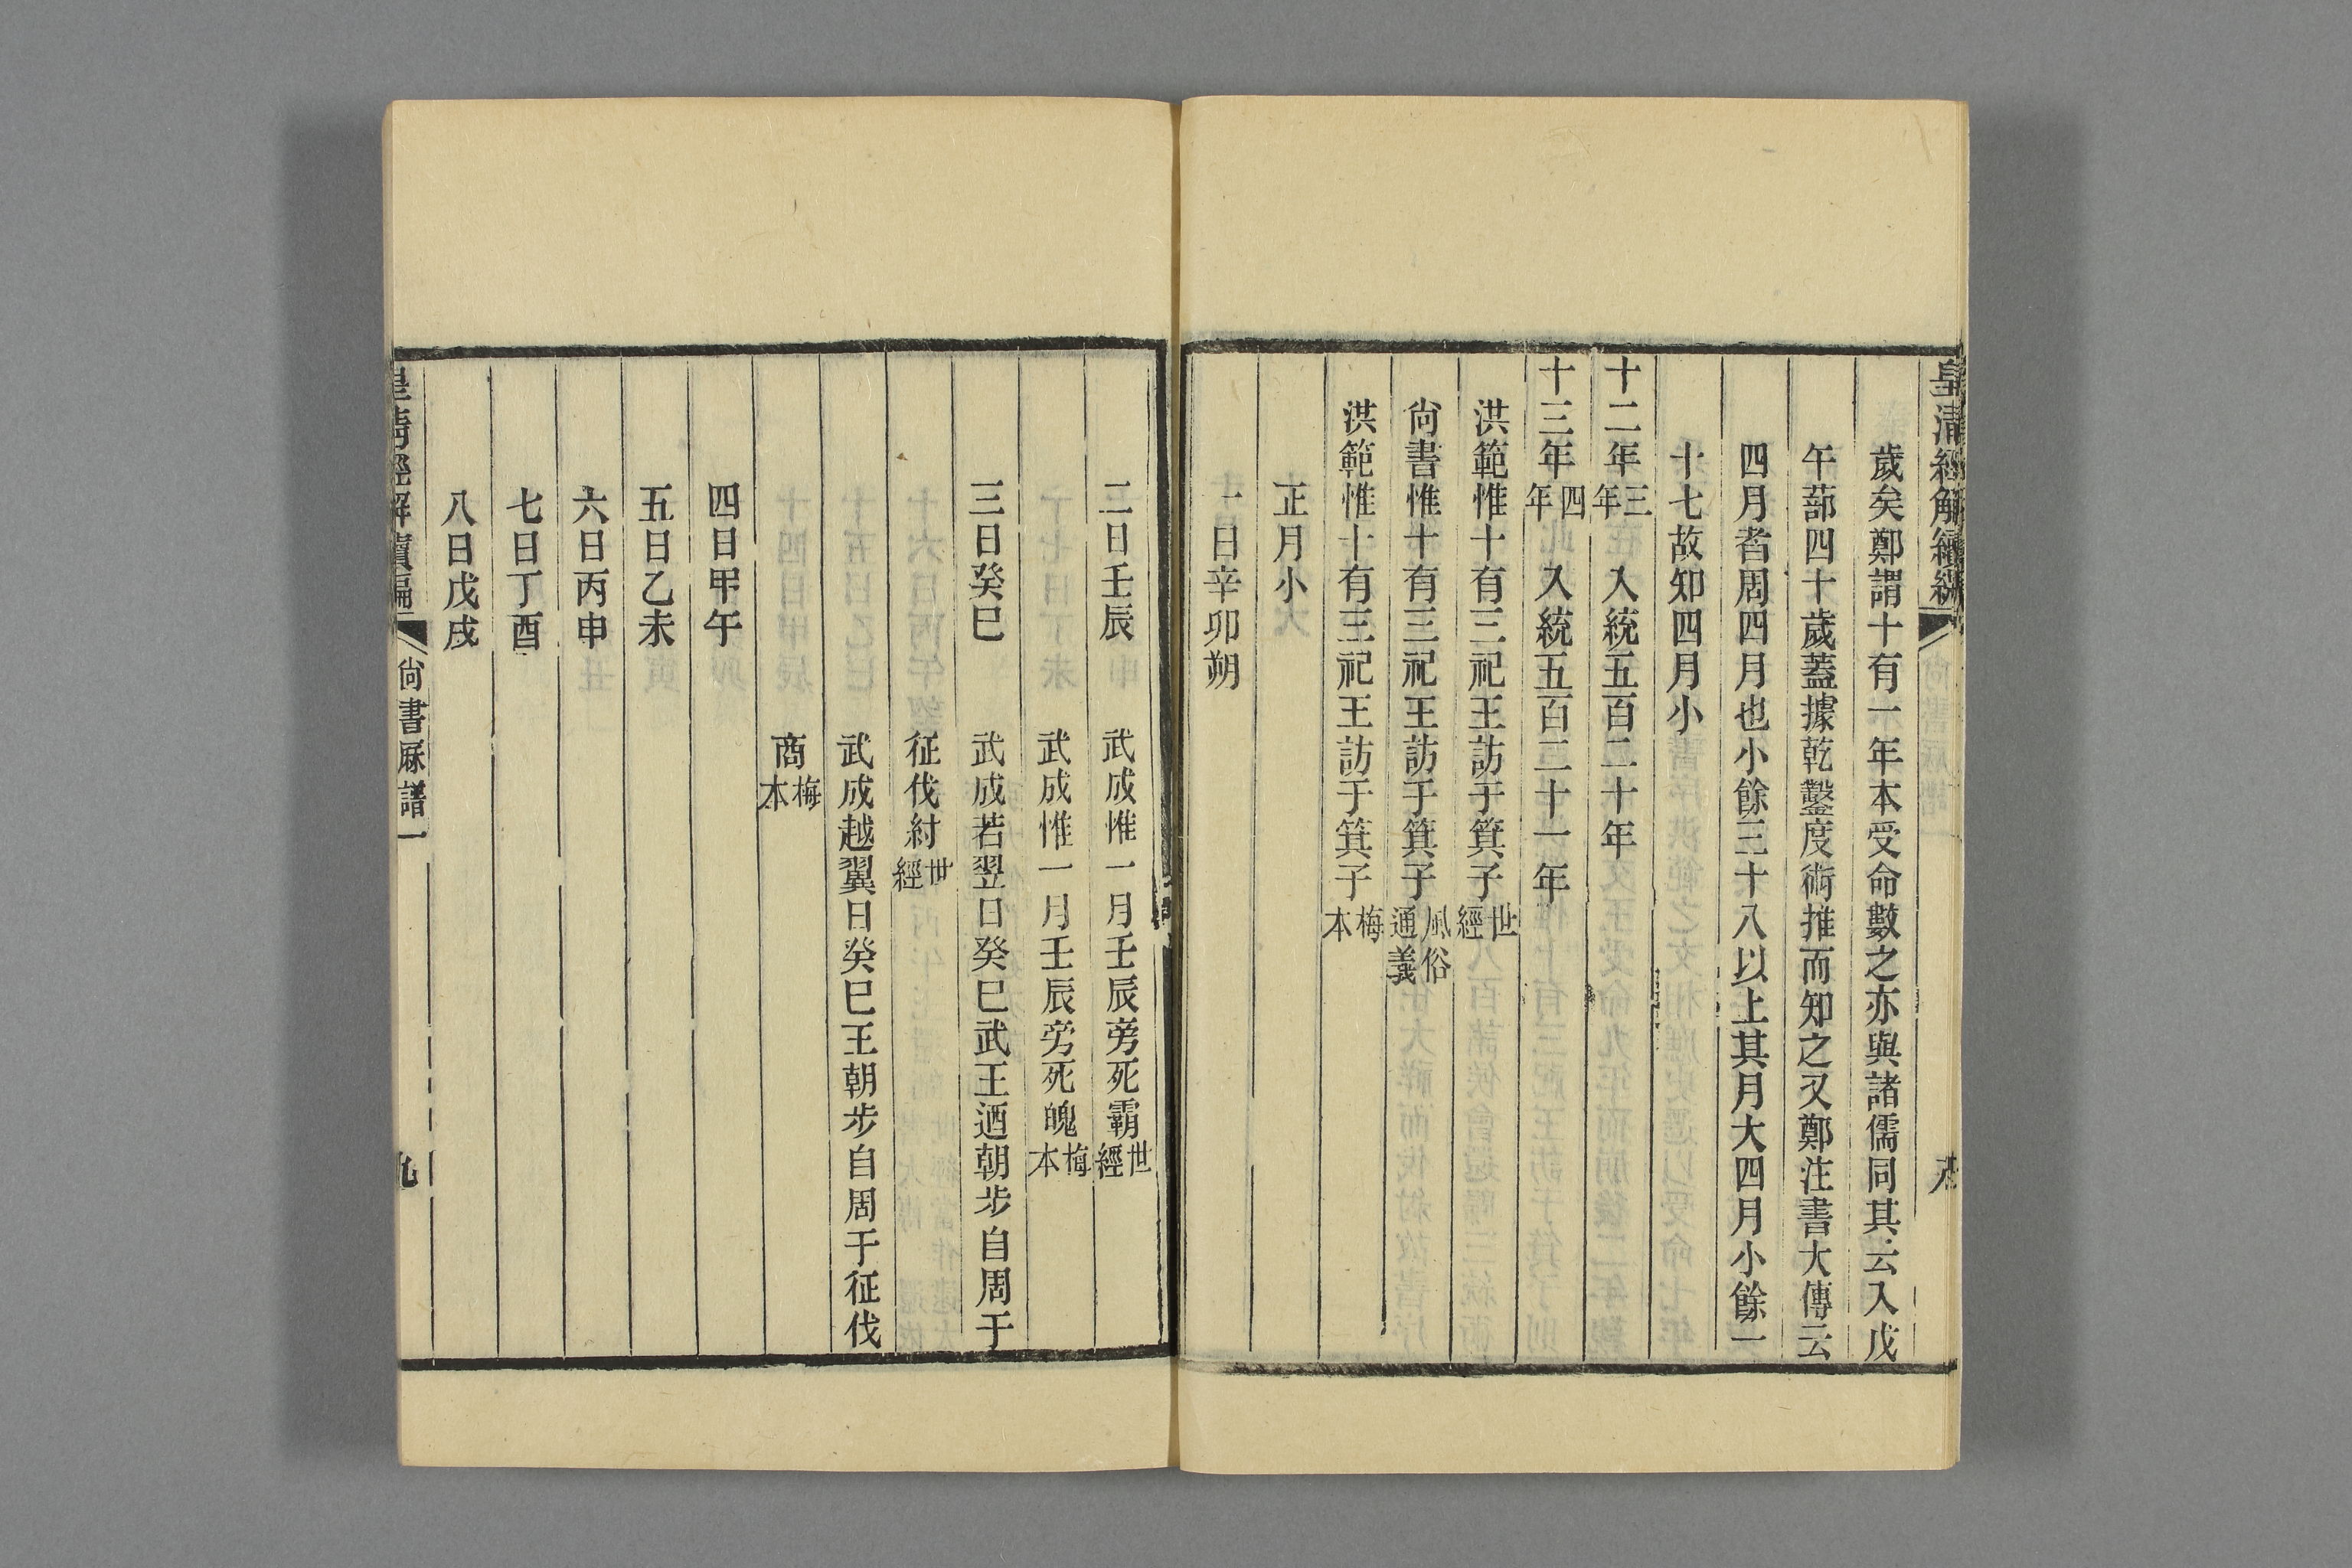 皇清經解續編
歲矣鄭謂十有一年本受命數之亦與諸儒同其云入戊
午蔀四十歲蓋據乾鑿度術推而知之又鄭注書大傳云
四月者周四月也小餘三十八以上其月大四月小餘一
十七故知四月小
十二年三年 入統五百二十年
十三年四年 入統五百二十一年
洪範惟十有三祀王訪于箕子世經
尙書惟十有三祀王訪于箕子風俗通義
洪範惟十有三祀王訪于箕子梅本
正月小
一日辛卯朔
二日壬辰 武成惟一月壬辰旁死霸世經
武成惟一月壬辰旁死魄梅本
三日癸巳 武成若翌日癸巳武王迺朝步自周于
征伐紂世經
武成越翼日癸巳王朝步自周于征伐
商梅本
四日甲午
五日乙未
六日丙申
七日丁酉
八日戊戌
皇清經解續編 尙書厤譜一 九